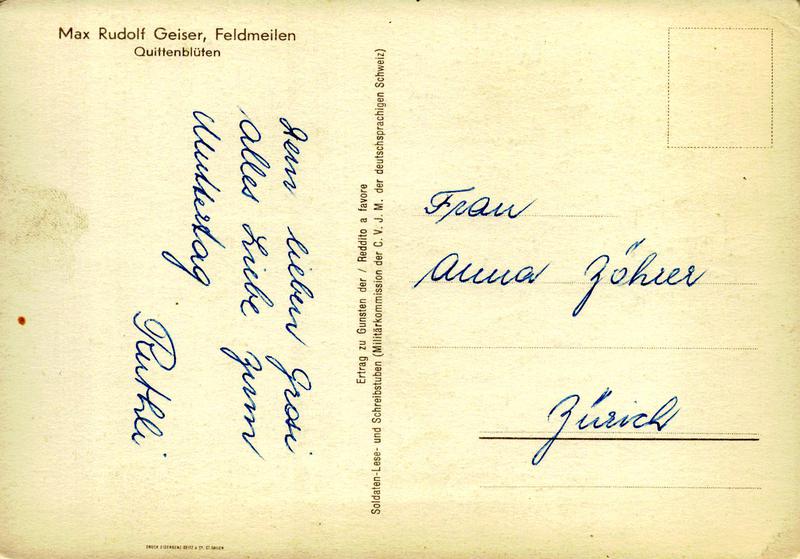 Max Rudolf Geiser, Feldmeilen
Quittenblüten
Dem lieben Grosi
alles Liebe zum
Muttertag
Ruthli
Ertrag zu Gunsten der / Reddito a favore
Soldaten-Lese- und Schreibstuben (Militärkommission der C. V. J. M. der deutschsprachigen Schweiz)
Frau
Anna Zöhrer
Zürich